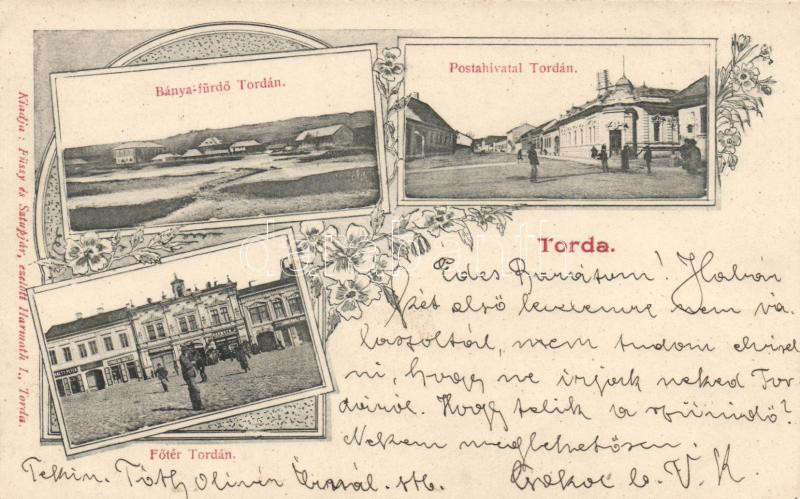 Bánya-fürdő Tordán.
Postahivatal Tordán.
Kiadja: Füssy és Sztupjár, ezelőtt Harmath I., Torda.
Torda.
Édes Barátom! Habár
két első levelemre nem vá-
laszoltál, nem tudom elvisel
ni, hogy ne írjak neked Tor
dáról. Hogy telik a szünidő?
Nekem meglehetősen.
Főtér Tordán.
Tekin. Tóth Olivér stb. Csókol b. V. K.